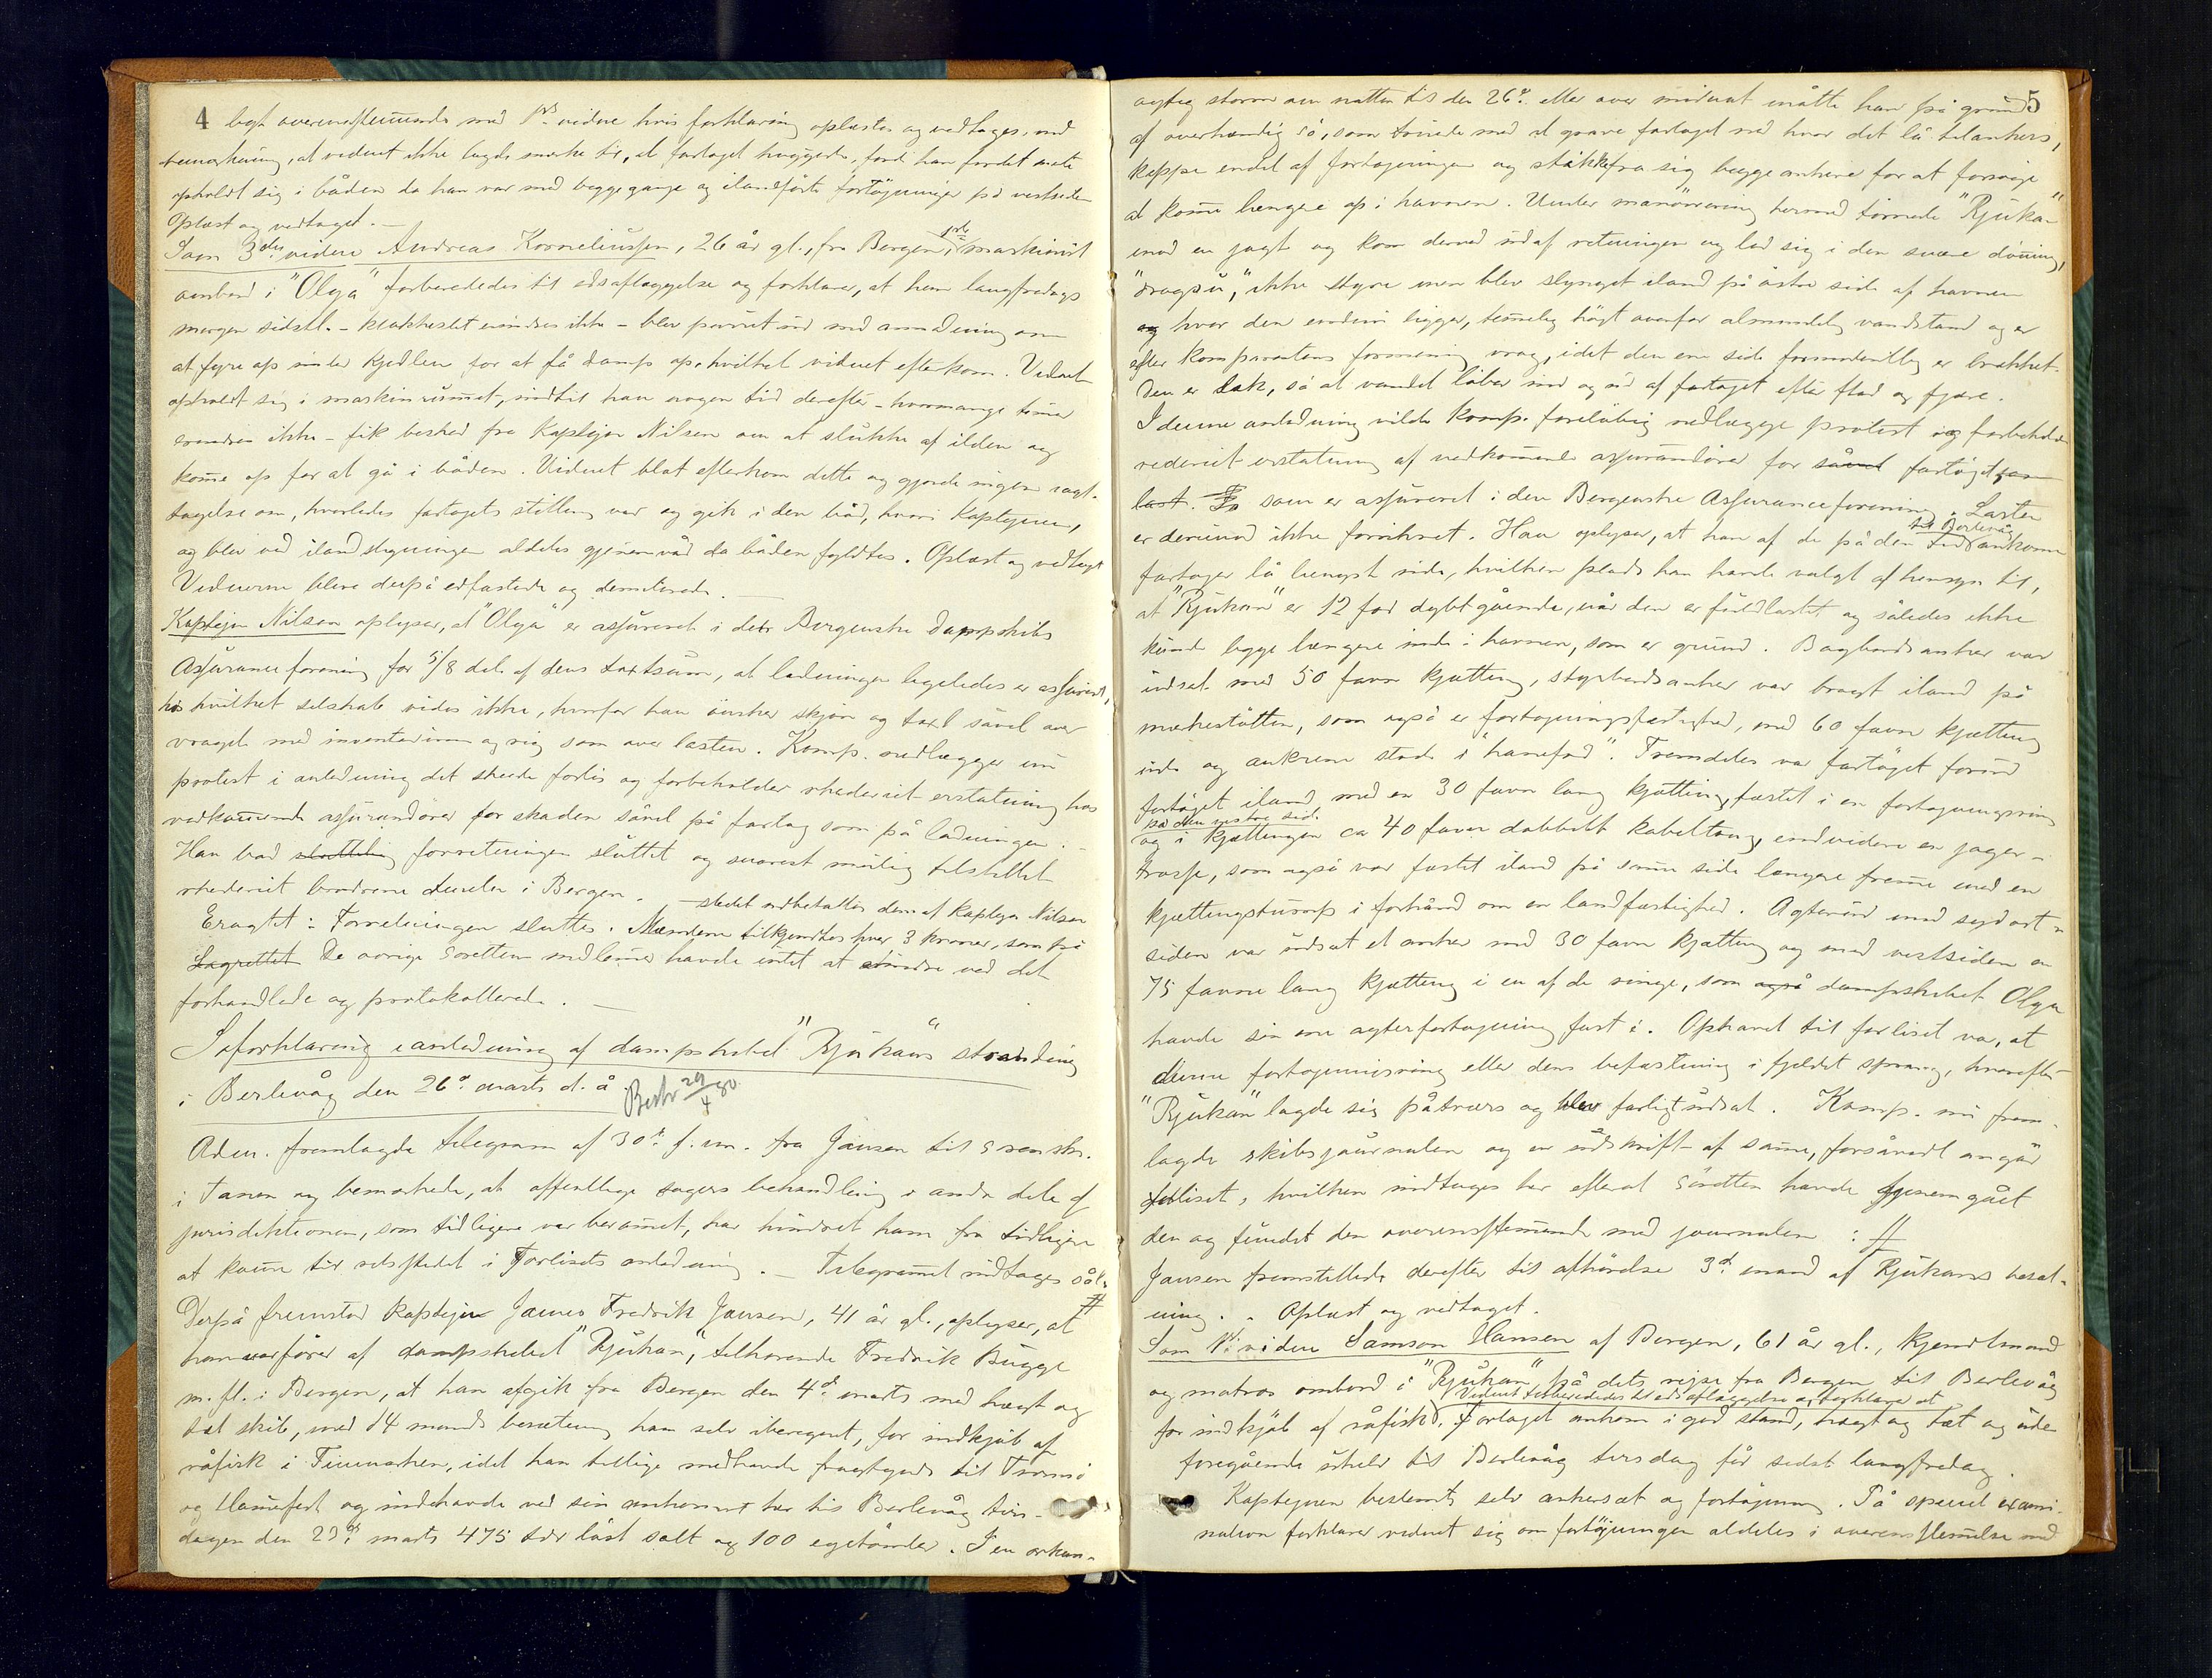 4
ligt overensstemmende med 1ste vidne hvis forklaring oplæstes og vedtages, med
bemærkning, at vidnet ikke lagde mærke til, at fartøjet huggede, fordi han for det meste
opholdt sig i båden da han var med begge gange og ilandførte fortøjninger på vestsiden
Oplæst og vedtaget. —
Som 3die vidne Andreas Korneliussen, 26 år gl., fra Bergen, 1ste maskinist
ombord i "Olga" forberededes til edsaflæggelse og forklarer, at han langfredags
morgen sidstl. – klokkeslet erindres ikke – blev purret ud med anmodning om
at fyre op under kjedlen for at få damp op, hvilket vidnet efterkom. Vidnet
opholdt sig i maskinrummet, indtil han nogen tid derefter – hvormange timer
erindres ikke – fik besked fra Kaptejn Nilsen om at slukke af ilden og
komme op for at gå i båden. Vidnet blot efterkom dette og gjorde ingen iagt-
tagelse om, hvorledes fartøjets stilling var og gik i den båd, hvori Kaptejnen,
og blev ved ilandstigningen aldeles gjennemvåd da båden fyldtes. Oplæst og vedtaget
Vidnerne bleve derpå edfæstede og demitterede. —
Kaptejn Nilsen oplyser, at "Olga" er assureret i den Bergenske Dampskibs
Assuranceforening for 5/8 del af dens taxtsum, at ladningen ligeledes er assureret,
hos hvilket selskab vides ikke, hvorfor han ønsker skjøn og taxt såvel over
vraget med inventarium og rig som over lasten. Komp. nedlægger nu
protest i anledning det skeede forlis og forbeholder rhederiet erstatning hos
vedkommende assurandører for skaden såvel på fartøj som på ladningen. –
Han bad forretningen sluttet og snarest mulig tilstillet
rhederiet brødrene i Bergen. —
Eragtet: Forretningen sluttes. Mændene tilkjendtes hver 3 kroner, som på
stedet udbetaltes dem af kaptejn Nilsen
Lagrettet De øvrige Sørettens medlemmer havde intet at erindre ved det
forhandlede og protokollerede. —
Søforklaring i anledning af dampskibet "Rjukans" stranding
i Berlevåg den 26de marts d. å. Beskr 29/4 80
Adm. fremlagde telegram af 30te f. m. fra Jansen til Sorenskr.
i Tanen og bemærkede, at offentlige sagers behandling i andre dele af
jurisdiktionen, som tidligere var berammet, har hindret ham fra tidligere
at komme til retsstedet i forlisets anledning. — Telegrammet indtages sål. #
Derpå fremstod kaptejn James Fredrik Jansen, 41 år gl., oplyser, at
han var fører af dampskibet "Rjukan", tilhørende Fredrik Bugge
m. fl. i Bergen, at han afgik fra Bergen den 4de marts med tæt og
tæt skib, med 14 mands besætning ham selv iberegnet, for indkjøb af
råfisk i Finmarken, idet han tillige medhavde fragtgods til Tromsø
og Hammerfest og indehavde ved sin ankomst her til Berlevåg tirs-
dagen den 23de marts 475 tdr løst salt og 100 egetønder. I en orkan-
5
agtig storm om natten til den 26de eller over midnat måtte han på grund
af overhændig sø, som truede med at grave fartøjet ned hvor det lå tilankers,
kappe endel af fortøjningen og stikke fra sig begge ankere for at forsøge
at komme længere op i havnen. Under manøvrering hermed tørnede "Rjukan"
mod en jagt og kom derved ud af retningen og lod sig i den svære dønning,
"dragsu", ikke styre men blev slynget iland på østre side af havnen
og hvor den endnu ligger, temmelig højt ovenfor almindelig vandstand og er
efter komparentens formening vrag, idet den ene side formodentlig er brækket.
Den er læk, så at vandet løber ind og ud af fartøjet efter flod og fjære.
I denne anledning vilde komp. foreløbig nedlægge protest og forbeholde
rederiet erstatning af vedkommende assurandører for såvel fartøjet som
last. som er assureret i den Bergenske Assuranceforening. Lasten
er derimod ikke forsikret. Han oplyser, at han af de på den tid til Berlevåg ankomne
fartøjer lå længst inde, hvilken plads han havde valgt af hensyn til,
at "Rjukan" er 12 fod dybtgående, når den er fuldlastet og således ikke
kunde ligge længere inde i havnen, som er grund. Bagbordsanker var
udsat med 50 favne kjætting, styrbordsanker var bragt iland på
mærkestøtten, som også er fortøjningsfæstighed, med 60 favne kjætting
ude og ankrene stode i "hanefod". Fremdeles var fartøjet forud
fortøjet iland på den vestre side med en 30 favne lang kjætting, fæstet i en fortøjningsring
og i kjættingen ca 40 favne dobbelt kabeltoug, endvidere en jager-
trosse, som også var fæstet iland på samme side længere fremme med en
kjættingstump i forhånd om en landfæstighed. Agterud mod sydost-
siden var udsat et anker med 30 favne kjætting og mod vestsiden en
75 favne lang kjætting i en af de ringe, som også dampskibet Olga
havde sin ene agterfortøjning fast i. Ophavet til forliset var, at
denne fortøjningsring eller dens befæstning i fjeldet sprang, hvorefter
"Rjukan" lagde sig påtværs og blev farligt udsat. Komp. nu frem-
lagde skibsjournalen og en udskrift af samme, forsåvidt angår
forliset, hvilken indtages her efterat Søretten havde gjennemgået
den og fundet den overensstemmende med journalen : #
Jansen fremstillede derefter til afhørelse 3de mand af Rjukans besæt-
ning. – Oplæst og vedtaget.
Som 1ste vidne Samson Hansen af Bergen, 61 år gl., kjendtmand
og matros ombord i "Rjukan" på dets rejse fra Bergen til Berlevåg
for indkjøb af råfisk. Vidnet forberededes til edsaflæggelse og forklarer at
Fartøjet ankom i god stand, tragt og tæt og uden
foregående uheld til Berlevåg tirsdag før sidst langfredag.
Kaptejnen bestemte selv ankersæt og fortøjning. På speciel exami-
nation forklarer vidnet sig om fortøjningen aldeles i overensstemmelse med